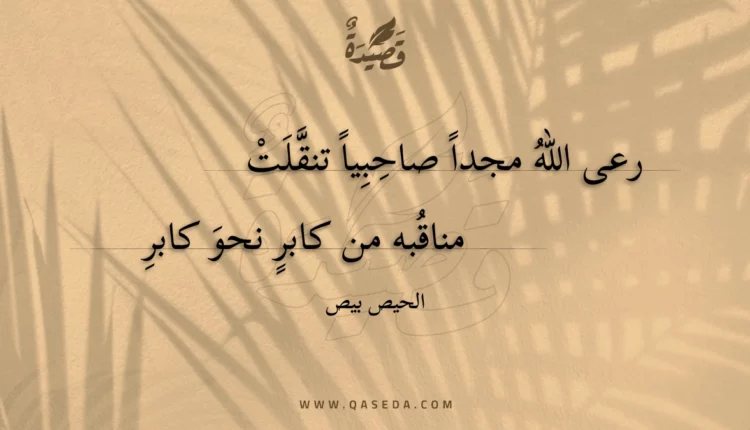 قَصِيْدَةٌ
رعى اللهُ مجداً صاحِبِياً تنقَّلَتْ
مناقُبه من كابرٍ نحوَ كابرِ
الحيص بيص
WWW.QASEDA.COM